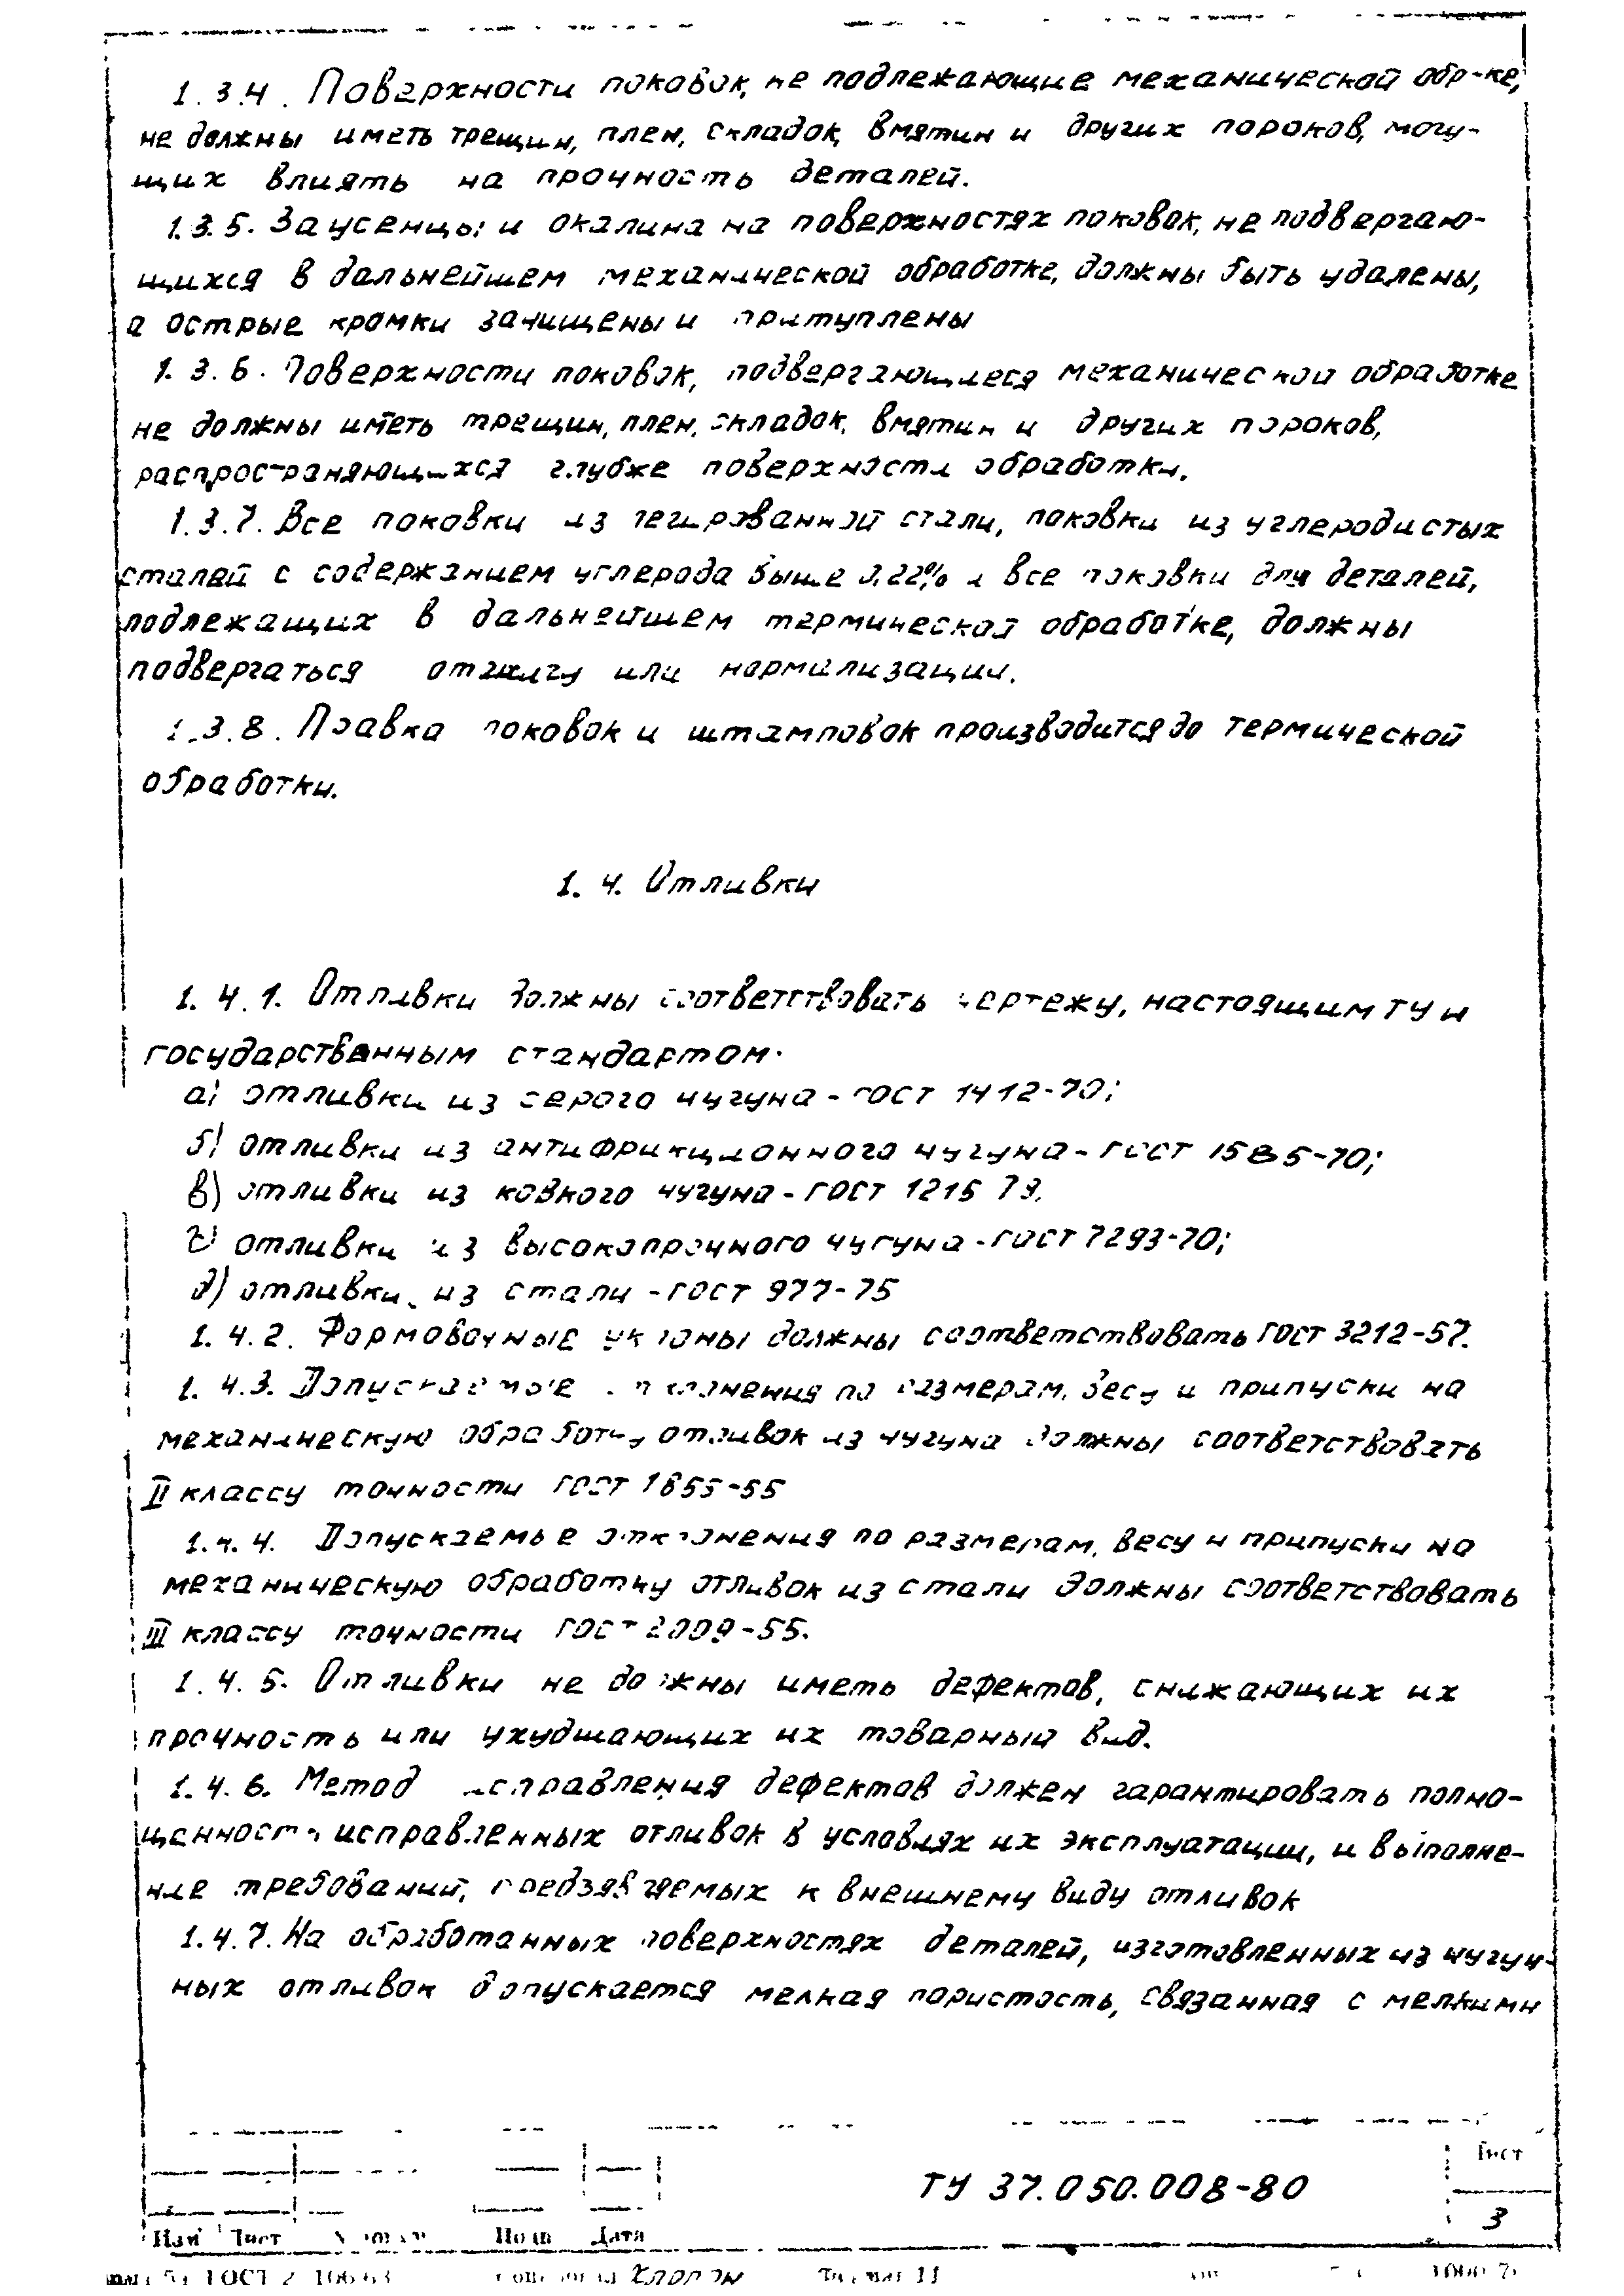 1.3.4. Поверхности поковок, не подлежающие механической обр-ке,
не должны иметь трещин, плен, складок, вмятин и других пороков, могу-
щих влиять на прочность деталей.
1.3.5. Заусенцы и окалина на поверхностях поковок, не подвергаю-
щихся в дальнейшем механической обработке, должны быть удалены,
а острые кромки зачищены и притуплены
1.3.6. Поверхности поковок, подвергающиеся механической обработке
не должны иметь трещин, плен, складок, вмятин и других пороков,
распространяющихся глубже поверхности обработки.
1.3.7. Все поковки из легированной стали, поковки из углеродистых
сталей с содержанием углерода выше 0,22% и все поковки для деталей,
подлежащих в дальнейшем термической обработке, должны
подвергаться отжигу или нормализации.
1.3.8. Правка поковок и штамповок производится до термической
обработки.
1.4. Отливки
1.4.1. Отливки должны соответствовать чертежу, настоящим ТУ и
государственным стандартом.
а) отливки из серого чугуна - ГОСТ 1412-70;
б) отливки из антифрикционного чугуна - ГОСТ 1585-70;
в) отливки из ковкого чугуна - ГОСТ 1215 79.
г) отливки из высокопрочного чугуна - ГОСТ 7293-70;
д) отливки из стали - ГОСТ 977-75
1.4.2. Формовочные уклоны должны соответствовать ГОСТ 3212-57.
1.4.3. Допускаемые отклонения по размерам, весу и припуски на
механическую обработку отливок из чугуна должны соответствовать
II классу точности ГОСТ 1855-55
1.4.4. Допускаемые отклонения по размерам, весу и припуски на
механическую обработку отливок из стали должны соответствовать
III классу точности ГОСТ 2009-55.
1.4.5. Отливки не должны иметь дефектов, снижающих их
прочность или ухудшающих их товарный вид.
1.4.6. Метод исправления дефектов должен гарантировать полно-
ценность исправленных отливок в условиях их эксплуатации, и выполне-
ние требований, предъявляемых к внешнему виду отливок
1.4.7. На обработанных поверхностях деталей, изготовленных из чугун-
ных отливок допускается мелкая пористость, связанная с мелкими
ТУ 37.050.008-80
Лист
3
Изм Лист Подп Дата
ГОСТ 2 106 63